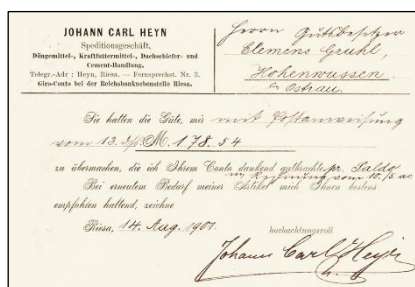 JOHANN CARL HEYN
Speditionsgeschäft,
Düngemittel-, Kraftfuttermittel-, Dachschiefer- und
Cement-Handlung.
Telegr.-Adr: Heyn, Riesa. — Fernsprechst. Nr. 3.
Giro-Conto bei der Reichsbanknebenstelle Riesa.
Herrn Gutsbesitzer
Clemens Gruhl,
Hohenwussen
b/ Ostrau.
Sie hatten die Güte, mir mit Postanweisung
vom 13. d/s M. 178.54
zu übermachen, die ich Ihrem Conto dankend gutbrachte pr. Saldo
m/ Rechnung vom 10./5 ac
Bei erneutem Bedarf meiner Artikel mich Ihnen bestens
empfohlen haltend, zeichne
Riesa, 14. Aug. 1901.
hochachtungsvoll
Johann Carl Heyn